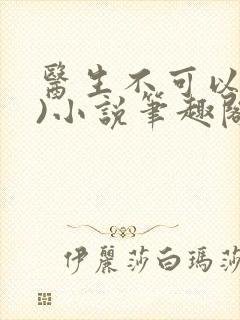 醫生不可以
)小說筆趣閣
伊麗莎白瑪莎